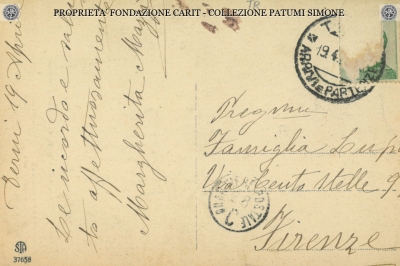 PROPRIETA' FONDAZIONE CARIT - COLLEZIONE PATUMI SIMONE
Terni 19 April
Le ricordo e salu
to affettuosamente
Margherita
ARRIVI E PARTENZE
19.4
Pregma
Famiglia Lupi
Via Cento Stelle 9
Firenze
POSTALE
STA
37658